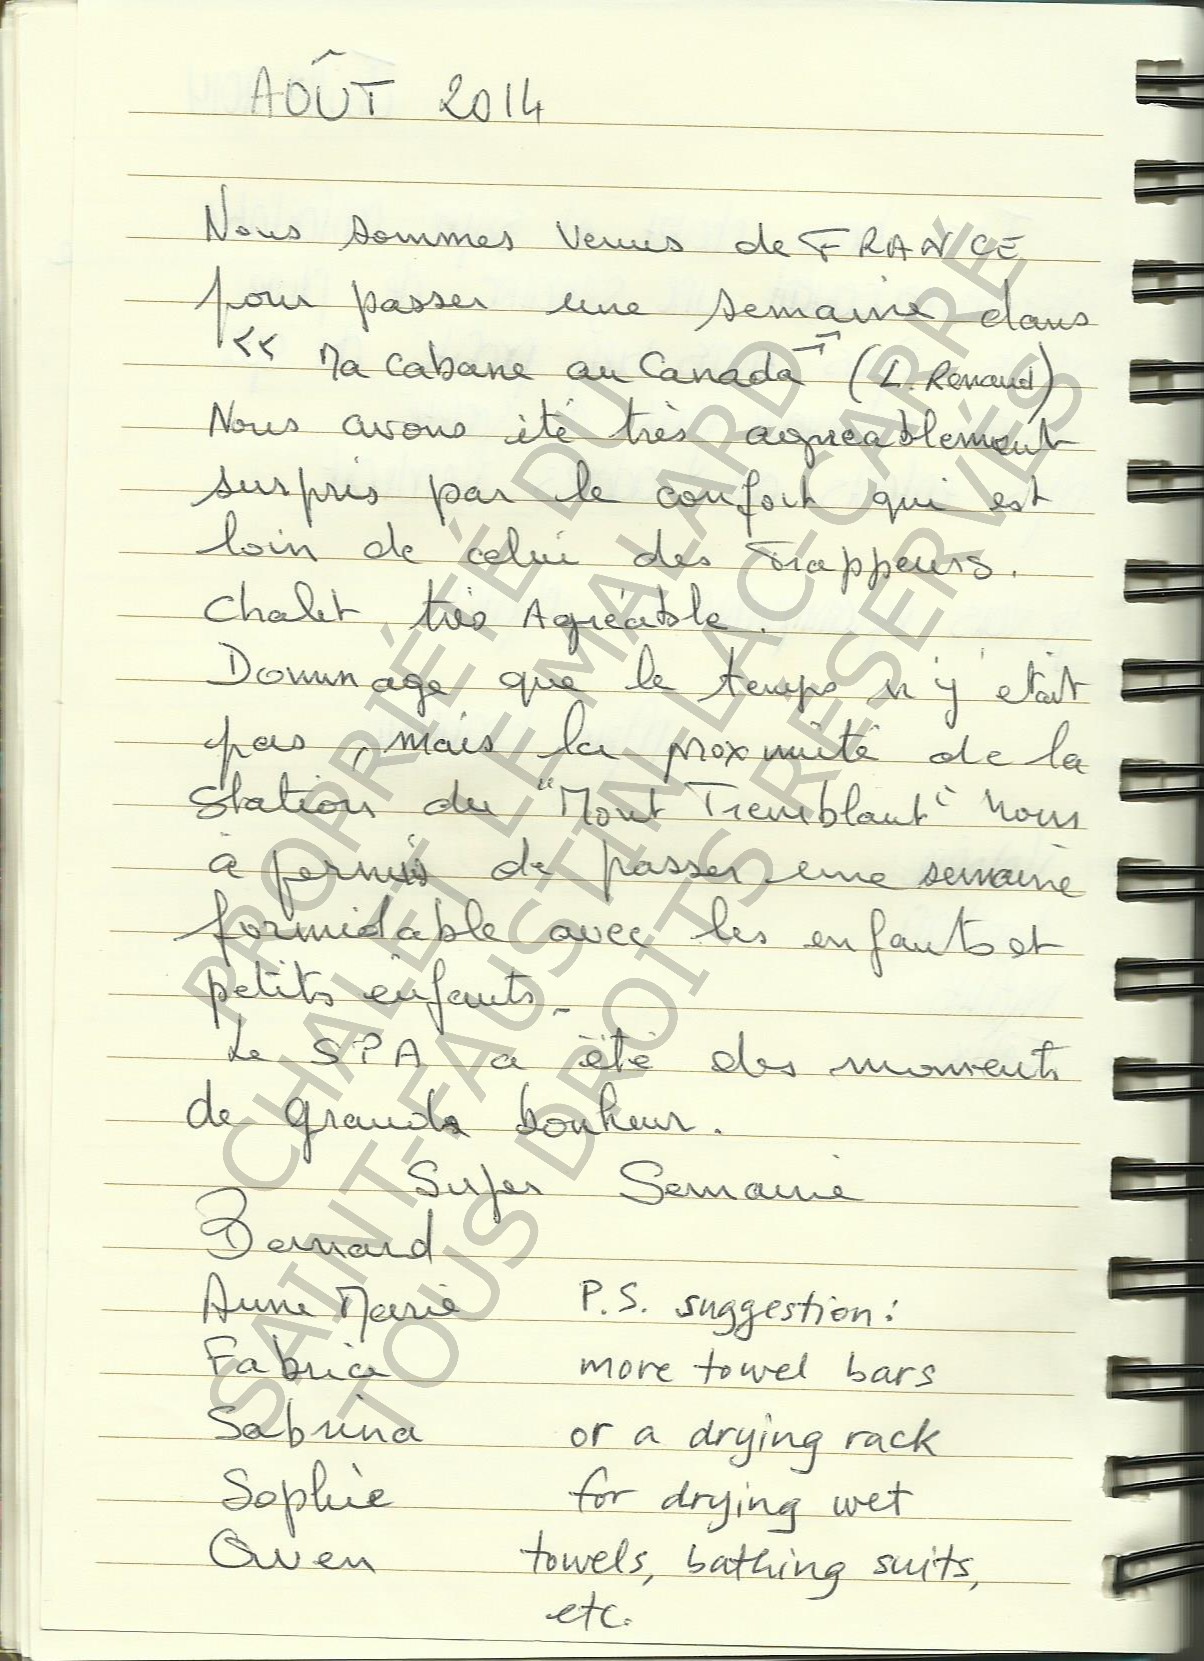 AOÛT 2014
Nous sommes venus de FRANCE
pour passer une semaine dans
<< Ma cabane au Canada >> (L. Renaud)
Nous avons été très agréablement
surpris par le confort qui est
loin de celui des Trappeurs.
Chalet très Agréable.
Dommage que le temps n'y était
pas, mais la proximité de la
Station du "Mont Tremblant" nous
à permis de passer une semaine
formidable avec les enfants et
petits enfants.
Le SPA a été des moments
de grands bonheur.
Super Semaine
Bernard
Anne Marie
Fabrice
Sabrina
Sophie
Owen
P.S. suggestion:
more towel bars
or a drying rack
for drying wet
towels, bathing suits,
etc.
PROPRIÉTÉ DU
CHALET LE MALARD
SAINT-FAUSTIN-LAC-CARRÉ
TOUS DROITS RÉSERVÉS